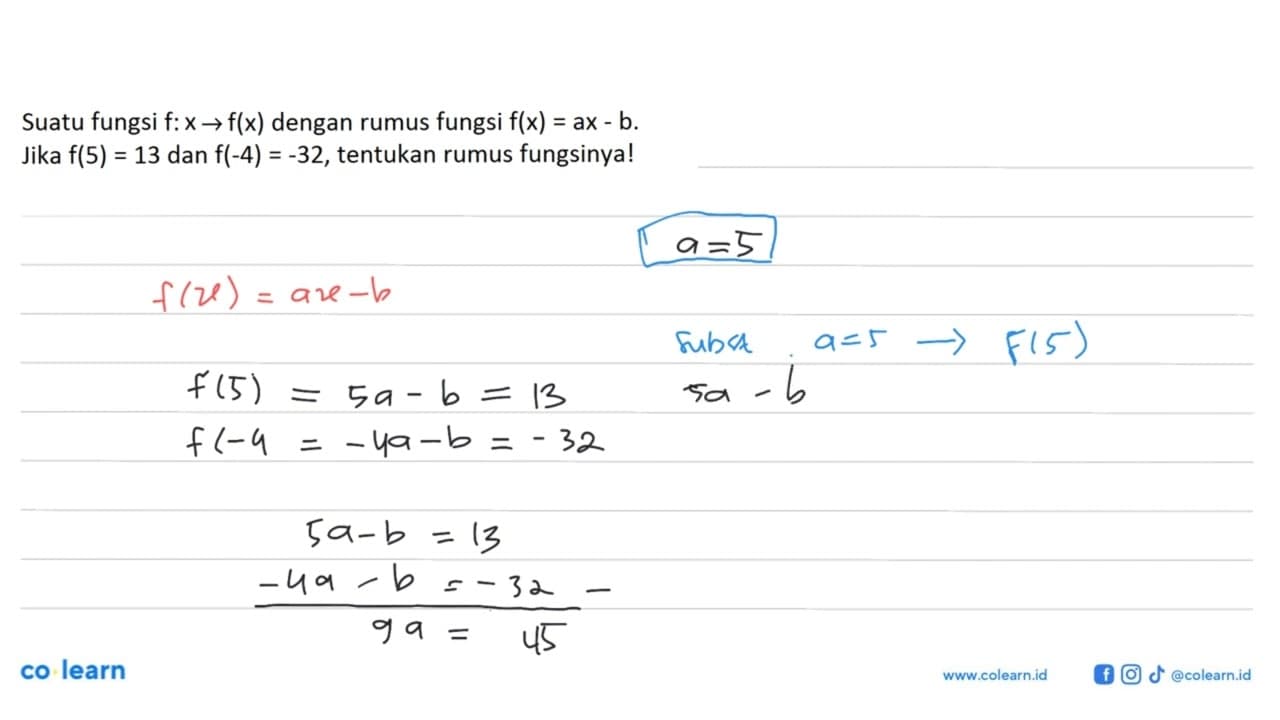 Suatu fungsi f: x → f(x) dengan rumus fungsi f(x) = ax - b.
Jika f(5) = 13 dan f(-4) = -32, tentukan rumus fungsinya!
a = 5
f(x) = ax - b
subst. a = 5 → F(5)
f(5) = 5a - b = 13
5a - b
f(-4 = -4a - b = -32
5a - b = 13
-4a - b = -32 -
9a = 45
co learn
www.colearn.id
@colearn.id